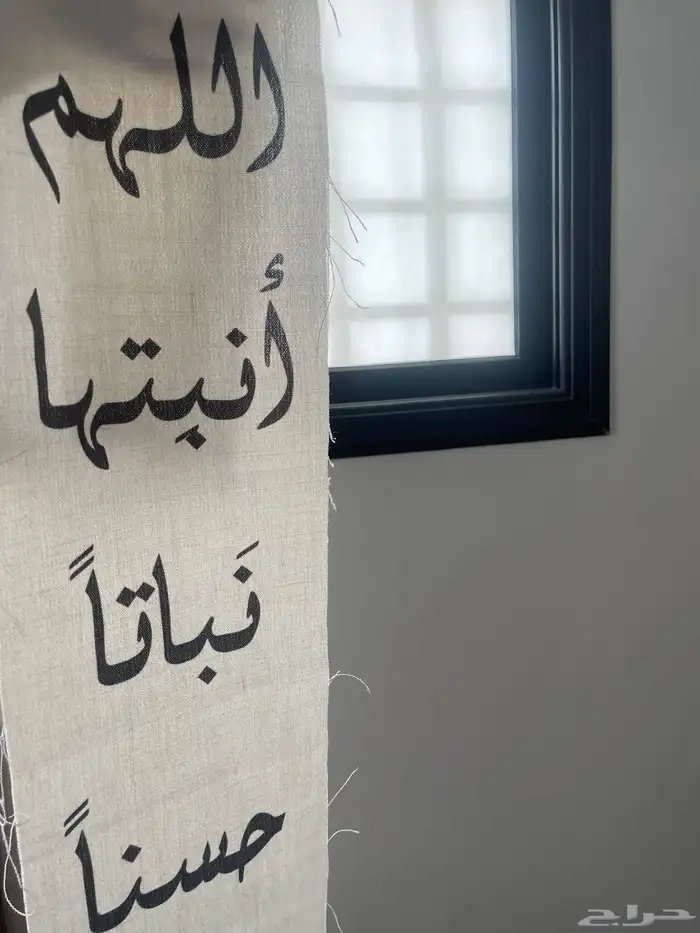 اللهم
أنبتها
نَباتاً
حسناً
حراج